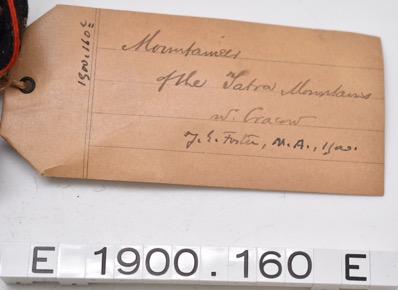 1900.160E
Mountaineer
of the Tatra Mountains
nr. Cracow
J. E. Foster, M.A., 1900.
E 1900.160 E